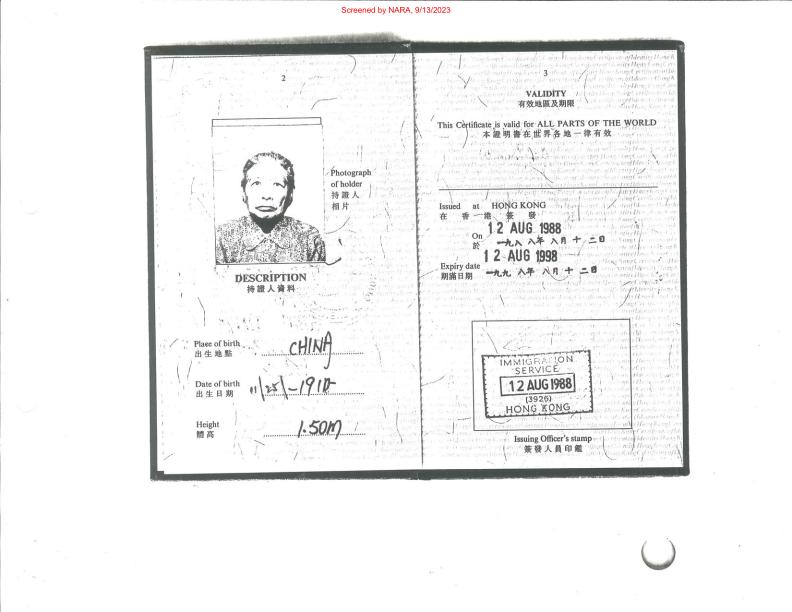 Screened by NARA, 9/13/2023
2
Photograph
of holder
持證人
相片
DESCRIPTION
持證人資料
Place of birth
出生地點
CHINA
Date of birth
出生日期
11/25/-191
Height
體高
1.50M
3
VALIDITY
有效地區及期限
This Certificate is valid for ALL PARTS OF THE WORLD
本證明書在世界各地一律有效
Issued at HONG KONG
在香港簽發
On 12 AUG 1988
於 一九八八年八月十二日
12 AUG 1998
Expiry date
期滿日期 一九九八年八月十二日
IMMIGRATION
SERVICE
12 AUG 1988
(3926)
HONG KONG
Issuing Officer's stamp
簽發人員印鑑